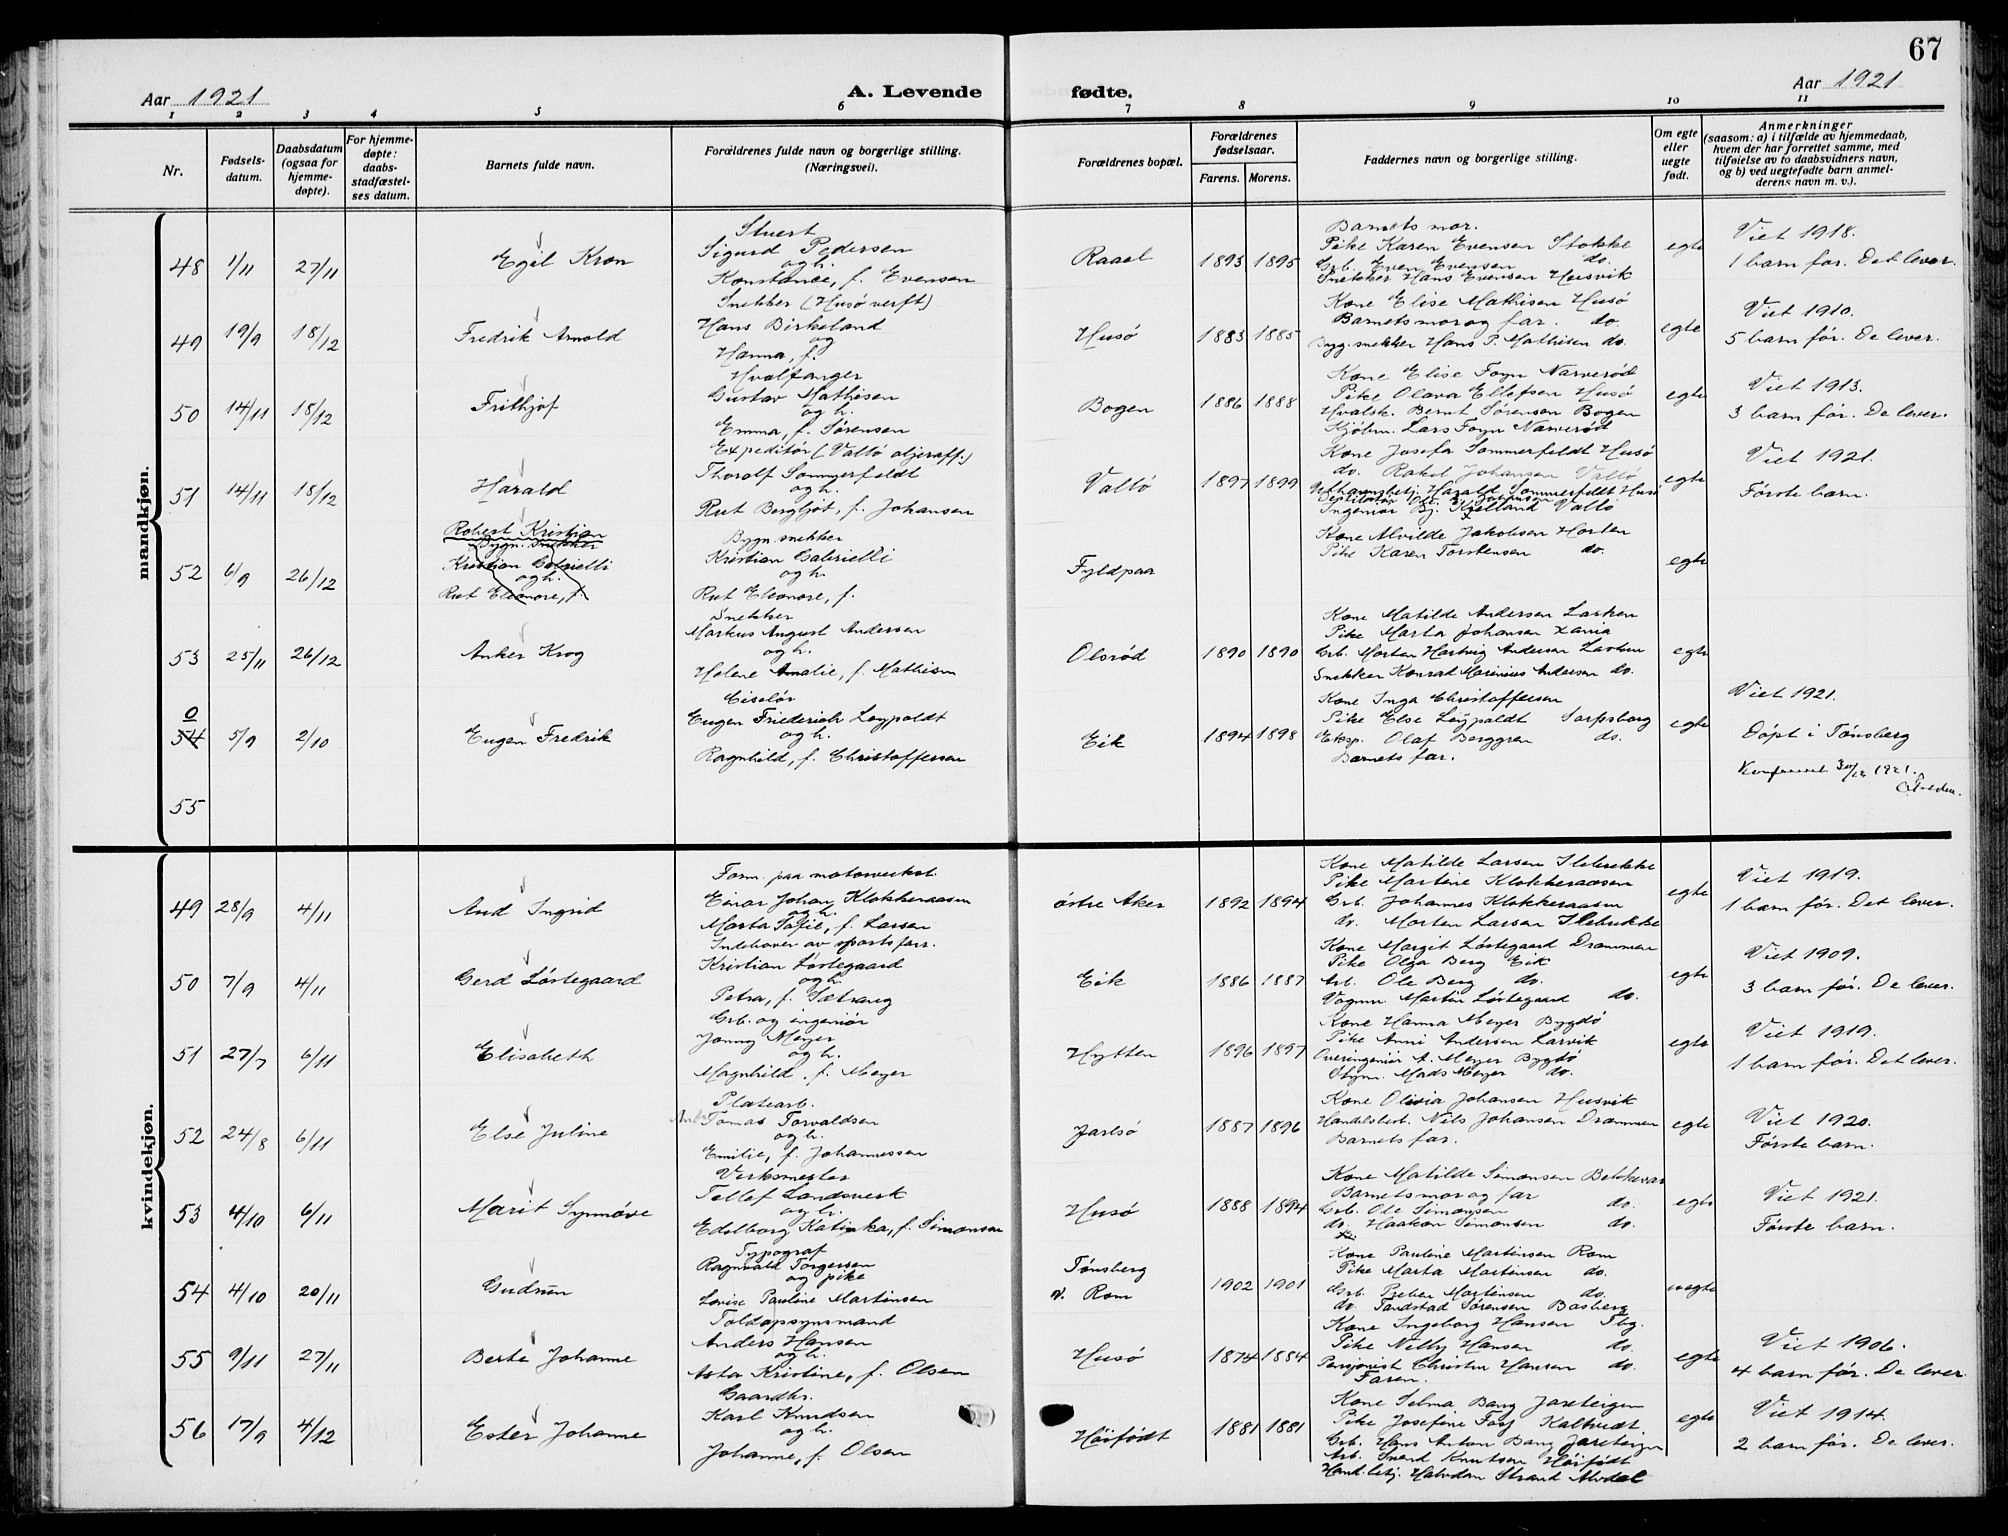 67
Aar 1921
A. Levende fødte.
Aar 1921
1 2 3 4 5 6 7 8 9 10 11
Nr.
Fødsels-
datum.
Daabsdatum
(ogsaa for
hjemme-
døpte).
For hjemme-
døpte:
daabs-
stadfæstel-
ses datum.
Barnets fulde navn.
Forældrenes fulde navn og borgerlige stilling.
(Næringsvei).
Forældrenes bopæl.
Forældrenes
fødselsaar.
Farens. Morens.
Faddernes navn og borgerlige stilling.
Om egte
eller
uegte
født.
Anmerkninger
(saasom: a) i tilfælde av hjemmedaab,
hvem der har forrettet samme, med
tilføielse av to daabsvidners navn,
og b) ved uegtefødte barn anmel-
derens navn m. v.).
mandkjøn.
48 1/11 27/11 Egil Kron
Stuert
Sigurd Pedersen
og h.
Konstanse, f. Evensen
Raael 1893 1895
Barnets mor.
Pike Karen Evensen Stokke
Grb. Even Evensen do.
Snekker Hans Evensen Husvik
egte
Viet 1918.
1 barn før. Det lever.
49 19/9 18/12 Fredrik Arnold
Snekker (Husø verft)
Hans Birkeland
og
Hanna, f.
Husø 1883 1885
Kone Elise Mathisen Husø
Barnets mor og far. do.
Byg. snekker Hans P. Mathisen do.
egte
Viet 1910.
5 barn før. De lever.
50 14/11 18/12 Frithjof
Hvalfanger
Gustav Mathisen
og h.
Emma, f. Sørensen
Bogen 1886 1888
Kone Elise Foyn Narverød
Pike Olava Ellefsen Husø
Hvalsk. Bernt Sørensen Bogen
Kjøbm. Lars Foyn Narverød
egte
Viet 1913.
3 barn før. De lever.
51 14/11 18/12 Harald
Expeditør (Vallø oljeraff.)
Thorolf Sommerfeldt
og h.
Rut Bergljot, f. Johansen
Vallø 1897 1899
Kone Josefa Sommerfeldt Husø
do. Rakel Johansen Vallø
Harald Sommerfeldt Husø
Ingeniør Bj. Kielland Vallø
egte
Viet 1921.
Første barn.
52 6/9 26/12 Robert Kristian
Bygn. snekker
Kristian Gabrielli
og h.
Rut Eleonore, f.
Bygn. snekker
Kristian Gabrielli
og h.
Rut Eleonore, f.
Fyldpaa
Kone Alvilde Jakobsen Horten
Pike Karen Torstensen do.
egte
53 25/11 26/12 Anker Krog
Snekker
Markus August Andersen
og h.
Helene Amalie, f. Mathisen
Olsrød 1890 1890
Kone Matilde Andersen Larken
Pike Marta Johansen Xania
Grb. Morten Hartvig Andersen Larken
Snekker Konrad Marinius Andersen do.
egte
0
54 5/9 2/10 Eugen Fredrik
Ciselør
Eugen Friederich Leypoldt
og h.
Ragnhild, f. Christoffersen
Eik 1894 1898
Kone Inga Christoffersen
Pike Else Leypaldt Sarpsborg
Eksp. Olaf Berggren do.
Barnets far.
egte
Viet 1921.
Døpt i Tønsberg
55
Konfereret 30/12 1921.
kvindekjøn.
49 28/9 4/11 Aud Ingrid
Form. paa motorverkst.
Einar Johan Klokkeraasen
og h.
Marta Sofie, f. Larsen
østre Aker 1892 1894
Kone Matilde Larsen Slebrekke
Pike Martine Klokkeraasen
Grb. Johannes Klokkeraasen
do. Morten Larsen Slebrekke
egte
Viet 1919.
1 barn før. Det lever.
50 7/9 4/11 Gerd Løstegaard
Indehaver av sportsforr.
Kristian Løstegaard
og h.
Petra, f. Sætrang
Eik 1886 1887
Kone Margit Løstegaard Drammen
Pike Olga Berg Eik
Arb. Ole Berg do.
Vognm. Martin Løstegaard do.
egte
Viet 1909.
3 barn før. De lever.
51 27/7 6/11 Elisabeth
Grb. og ingeniør
Jonny Meyer
og h.
Magnhild, f. Meyer
Hytten 1896 1897
Kone Hanna Meyer Bygdø
Pike Anni Andersen Larvik
Overingeniør A. Meyer Bygdø
Stym. Mads Meyer do.
egte
Viet 1919.
1 barn før. Det lever.
52 24/8 6/11 Else Juline
Platearb.
Tomas Torvaldsen
og h.
Emilie, f. Johannessen
Jarlsø 1887 1896
Kone Olivia Johansen Husvik
Handelsbest. Nils Johansen Drammen
Barnets far.
egte
Viet 1920.
Første barn.
53 4/10 6/11 Marit Synnøve
Verksmester
Tellef Landsverk
og h.
Edelborg Katinka, f. Simonsen
Husø 1888 1894
Kone Matilde Simonsen Bekkevar
Barnets mor og far do.
Grb. Ole Simonsen do.
do. Haakon Simonsen do.
egte
Viet 1921.
Første barn.
54 4/10 20/11 Gudrun
Typograf
Ragnvald Torgersen
og pike
Lovise Pauline Martinsen
Tønsberg
v. Rom 1902 1901
Kone Pauline Martinsen Rom
Pike Marta Martinsen do.
Grb. Preben Martinsen do.
do. Tandstad Sørensen Basberg
uegte
55 9/11 27/11 Berta Johanne
Toldopsynsmand
Anders Hansen
og h.
Asta Kristine, f. Olsen
Husø 1874 1884
Kone Ingeborg Hansen Tbg.
Pike Nelly Hansen do.
Pensjonist Christen Hansen do.
Faren.
egte
Viet 1906.
4 barn før. De lever.
56 17/9 4/12 Ester Johanne
Gaardbr.
Karl Knudsen
og h.
Johanne, f. Olsen
Høifødt 1881 1881
Kone Selma Bang Jareteigen
Pike Josefine Foss Kaltvedt.
Grb. Hans Anton Bang Jareteigen
Arb. Knutsen Høifødt
Halvdan Strand
egte
Viet 1914.
2 barn før. De lever.